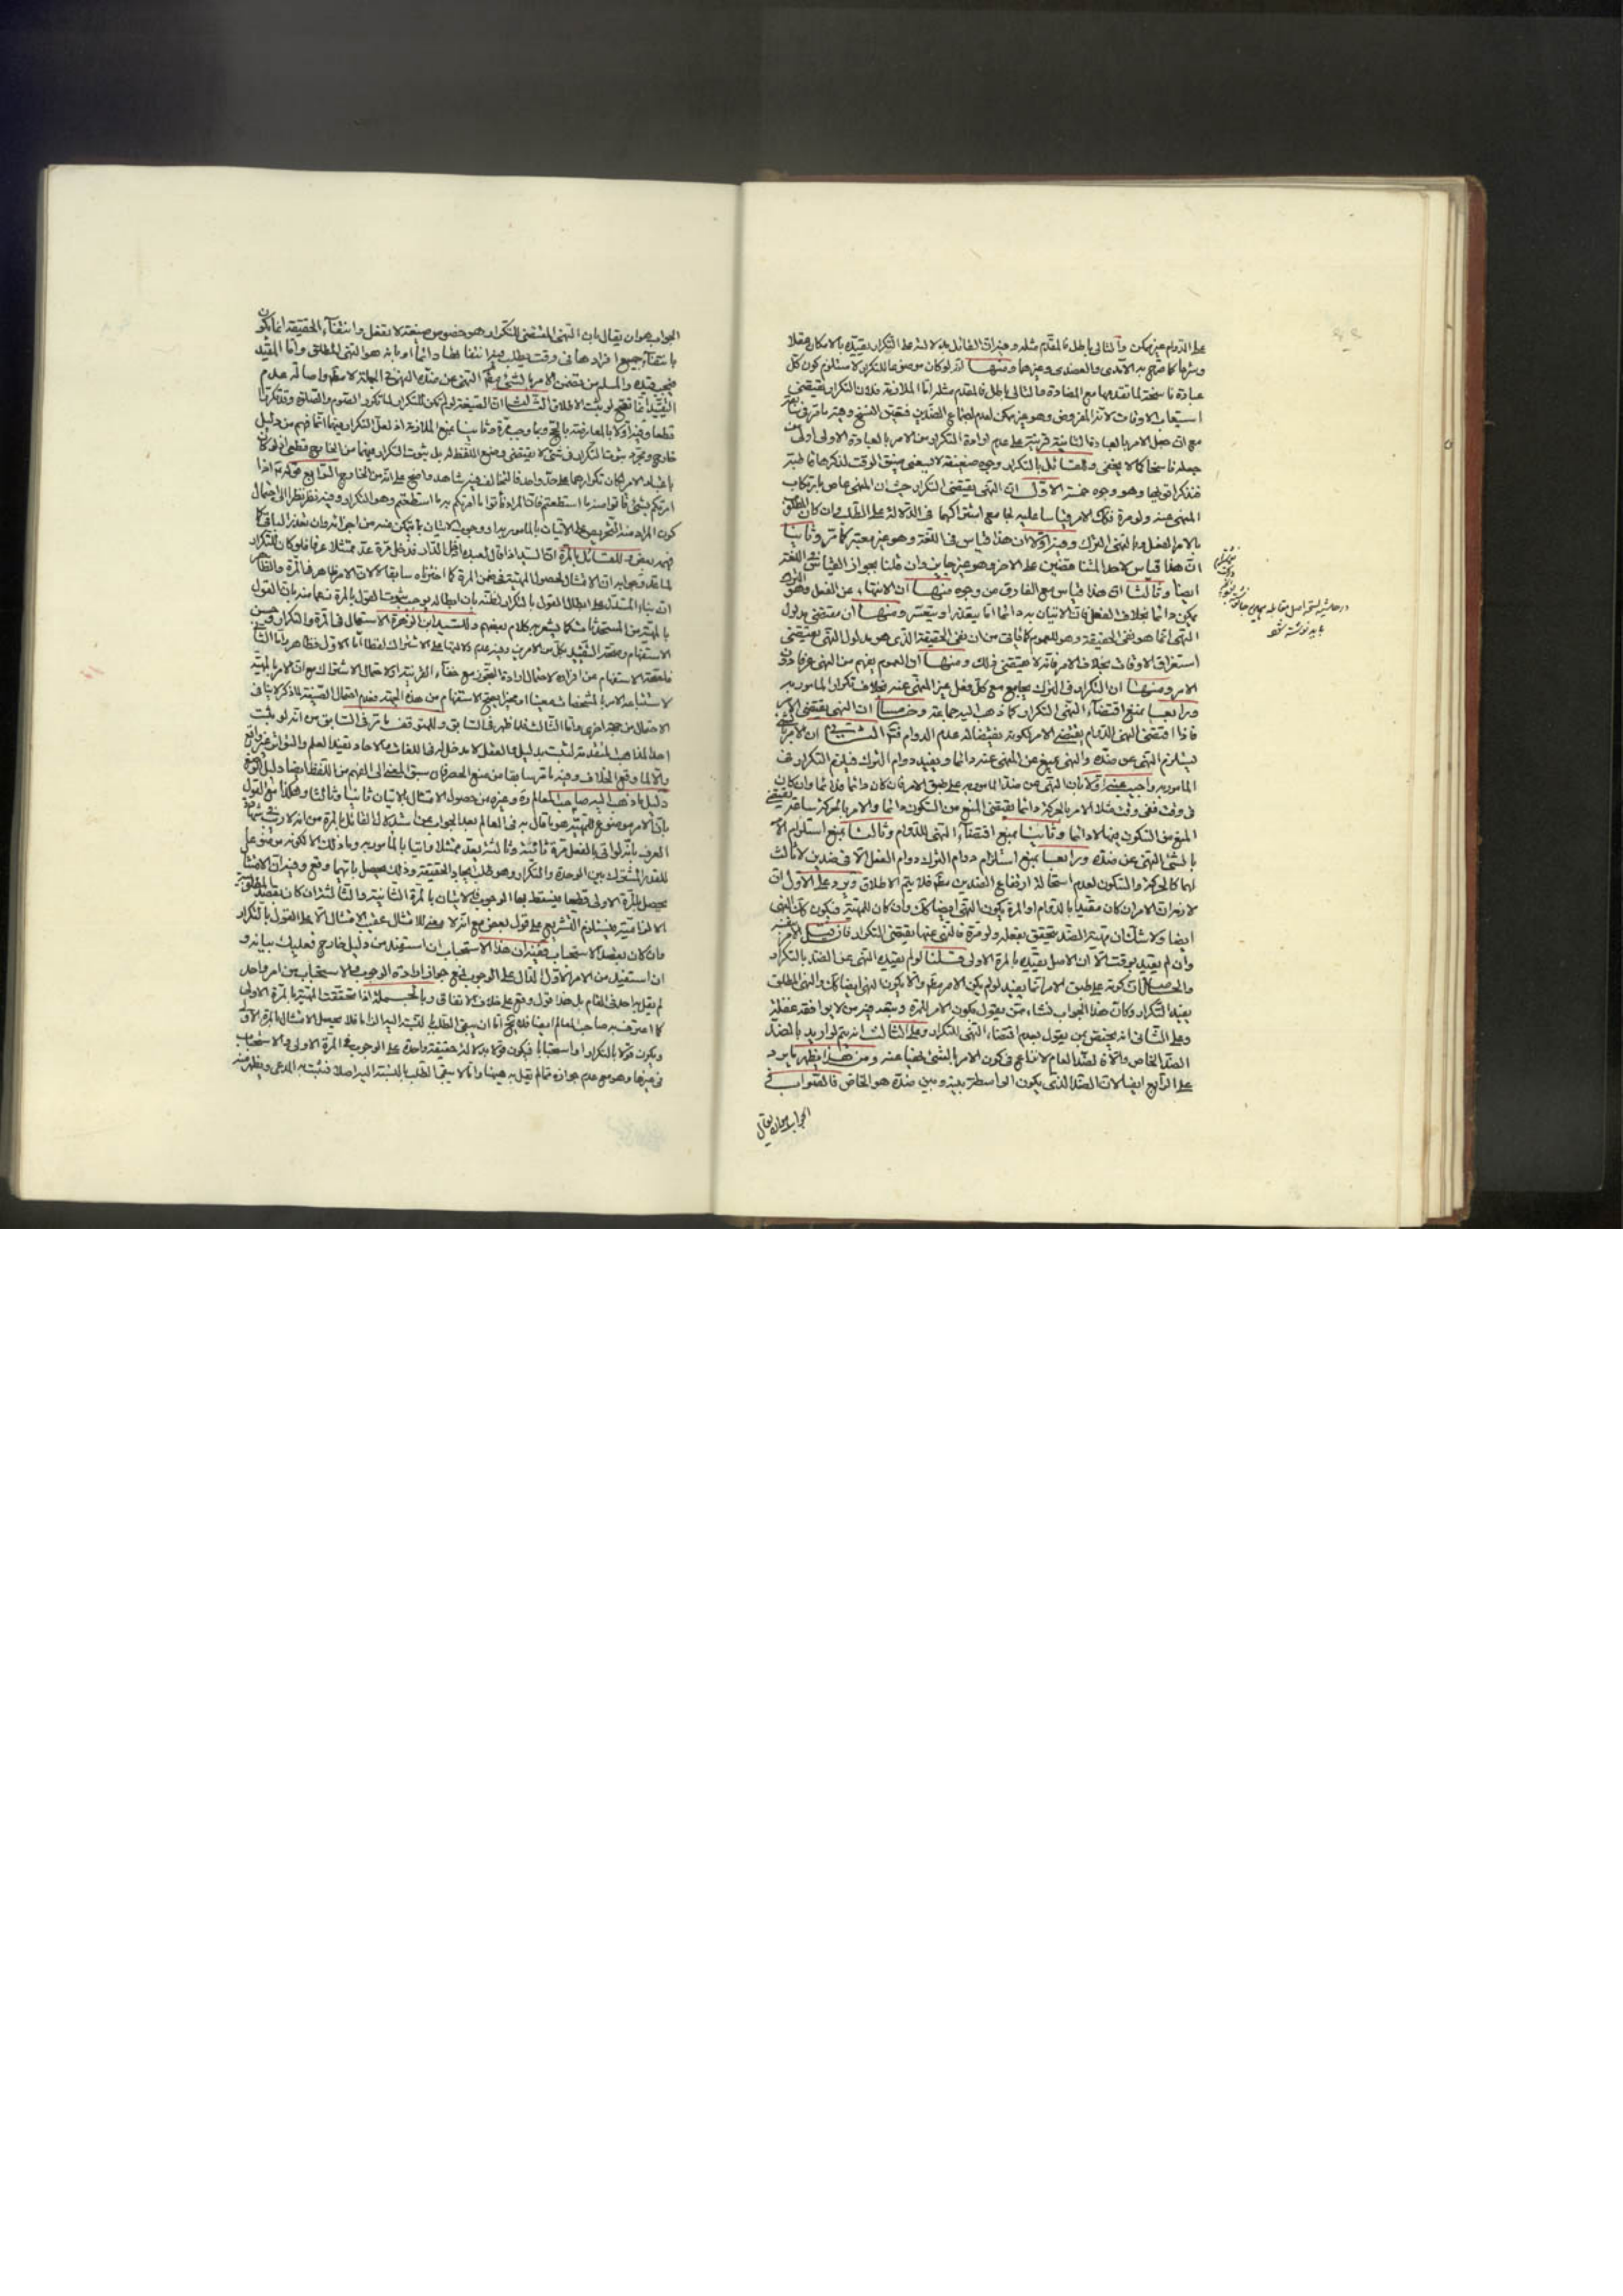 على الدوام غير ممكن والتالى باطل فالمقدم مثله وفيه ان القائل بدلالته على التكرار يقيده بالامكان عقلا
وشرعا كما صرح به الآمدى والعضدى وغيرهما ومنها انه لو كان موضوعا للتكرار لاستلزم كون كل
عبادة ناسخة لما تقدمها مع المضادة والتالى باطل فالمقدم مثله اما الملازمة فلان التكرار يقتضى
استيعاب الاوقات لانه المفروض وهو غير ممكن لعدم اجتماع الضدين فتعين النسخ وفيه ما مر
مع ان جعل الامر بالعبادة الثانية قرينة على عدم ارادة التكرار من الامر بالعبادة الاولى اولى من
جعله ناسخا كما لا يخفى وللقائل بالتكرار وجوه ضعيفة لا يسعنى ضيق الوقت لذكرها
وهو وجوه خمسة الاول ان النهى يقتضى التكرار حيث ان المنهى عاص بارتكاب
المنهى عنه ولو مرة فكذا الامر قياسا عليه لجامع اشتراكهما فى الدلالة على الطلب وان كان المطلوب
بالامر الفعل وبالنهى الترك وفيه اولا ان هذا قياس فى اللغة وهو غير معتبر كما مر وثانيا
ان هذا قياس لاحد المتناقضين على الاخر وهو غير جايز وان قلنا بجواز القياس فى اللغة
ايضا وثالثا ان هذا قياس مع الفارق من وجوه منها ان الانتهاء عن الفعل وهو الترك
يمكن دائما بخلاف الفعل فان الاتيان به دائما اما يتعذر او يتعسر ومنها ان مقتضى مدلول
النهى انما هو نفى الحقيقة وهو للعموم كما فى من ان نفى الحقيقة الذى هو مدلول النهى يقتضى
استغراق الاوقات بخلاف الامر فانه لا يقتضى ذلك ومنها ان العموم يفهم من النهى عرفا دون
الامر ومنها ان التكرار فى الترك يجامع مع كل فعل غير المنهى عنه بخلاف تكرار المامور به
ورابعا بمنع اقتضاء النهى التكرار كما ذهب اليه جماعة وخامسا ان النهى يقتضى
فاذا اقتضى النهى الدوام يقتضى الامر لكونه نقيضا له عدم الدوام فتم الثانى ان الامر بالشئ
يستلزم النهى عن ضده والنهى يمنع عن المنهى عنه دائما ويفيد دوام الترك فيلزم التكرار فى
المامور به واجيب عنه اولا بان النهى عن ضد المامور به على طبق الامر فان كان دائما فدائما وان كان
فى وقت ففى وقت مثلا الامر بالحركة دائما يقتضى المنع من السكون دائما والامر بالحركة ساعة يقتضى
المنع من السكون فيها لا دائما وثانيا بمنع اقتضاء النهى للدوام وثالثا بمنع استلزام الامر
بالشئ النهى عن ضده ورابعا بمنع استلزام دوام الترك دوام الفعل الا فى ضدين لا ثالث
لهما كالحركة والسكون لعدم استحالة ارتفاع الضدين مطلقا فلا يتم الاطلاق ويرد على الاول ان
لازمه ان الامر ان كان مقيدا بالدوام او المرة يكون النهى ايضا كذلك وان كان للمهية فيكون كذلك النهى
ايضا ولا شك ان مهية الضد تتحقق بفعله ولو مرة فالنهى عنها يقتضى التكرار فان قيل الامر
وان لم يقيد بوقت الا ان الاصل يقيده بالمرة الاولى قلنا لو لم يقيده النهى عن الضد بالتكرار
والحاصل ان كونه على طبق الامر انما يفيد لو لم يكن الامر مطلقا والا يكون النهى ايضا كذلك والنهى المطلق
يفيد التكرار وكان هذا الجواب نشاء ممن يقول بكون الامر للمرة وتبعه فيه من لا يوافقه غفلة
وعلى الثانى انه يختص بمن يقول بعدم اقتضاء النهى التكرار وعلى الثالث انه يتم لو اريد بالضد
الضد الخاص والا فالضد العام لا نزاع فى كون الامر بالشئ نهيا عنه ومن هذا يظهر ما يرد
على الرابع ايضا لان الضد الذى يكون الواسطة بينه وبين ضده هو الخاص فالصواب فى
الجواب هو ان يقال
در حاشيه نسخه اصل مقابله
بايد نوشته شود
الجواب هو ان يقال بان النهى المقتضى للتكرار هو خصوص صيغة لا تفعل وانتفاء الحقيقة انما يكون
بانتفاء جميع افرادها فى وقت يطلب فيه انتفائها دائما او بانه هو النهى المطلق واما المقيد
فبحسب قيده والمسلم من تضمن الامر بالشئ النهى عن ضده النهى فى الجملة لا مطلقا واصالة عدم
التقييد انما تصح لو ثبت الاطلاق الثالث ان الصيغة لو لم تكن للتكرار لما تكرر الصوم والصلوة وقد تكررا
قطعا وفيه اولا بالمعارضة بالحج وثانيا بمنع الملازمة اذ لعل التكرار فيهما انما فهم من دليل
خارج ومجرد ثبوت التكرار فى شئ لا يقتضى وضع اللفظ له بل ثبوت التكرار فيهما من الخارج قطعى اذ لو كان
باعتبار الامر لكان تكرارهما على حد واحد فالتخالف فيه شاهد واضح على انه من الخارج الرابع قوله اذا
امرتكم بشئ فاتوا منه ما استطعتم فان المراد فأتوا بما امرتكم به ما استطعتم وهو التكرار وفيه نظر نظرا الى احتمال
كون المراد منه التحريص على الاتيان بالمامور به او وجوب الاتيان بما يتمكن منه من اجزائه وان تعذر الباقى كما
فهمه بعض وللقائل بالمرة ان السيد اذا قال لعبده ادخل الدار فدخل مرة عد ممتثلا عرفا فلو كان للتكرار
لما عد وجوابه ان الامتثال لحصول المهية فى ضمن المرة كما اخترناه سابقا لا لان الامر ظاهر فى المرة والظاهر
ان بناء المستدل على ابطال القول بالتكرار لظنه بان ابطاله يوجب ثبوت القول بالمرة زعما منه بان القول
بالمهية من المستحدثات كما يشعر به كلام بعضهم وللسيد ابن زهرة الاستعمال فى المرة والتكرار وحسن
الاستفهام وصحة التقييد بكل من الامرين وفيه عدم دلالتها على الاشتراك لفظا اما الاول فظاهر واما الثانى
فلصحة الاستفهام عن افراده لاحتمال ارادة التجوز مع خفاء القرينة او لاحتمال الاشتراك مع ان الامر بالمهية
لا ستتباعه الامر بالمشخصات معينا او مخيرا يصح الاستفهام من هذه الجهة فعدم احتمال الصيغة لما ذكر لا ينافى
الاحتمال من جهة اخرى واما الثالث فلما ظهر فى السابق وللمتوقف ما مر فى السابق من انه لو ثبت
احد المذاهب المتقدمة لثبت بدليل والعقل لا مدخل له فى اللغات والاحاد لا يفيد العلم والتواتر غير واقع
والا لما وقع الخلاف وفيه ما مر سابقا من منع الحصر فان سبق المعنى الى الفهم من اللفظ ايضا دليل الوضع
دليل ما ذهب اليه صاحب المعالم ره وغيره من حصول الامتثال بالاتيان ثانيا وثالثا وهكذا مع القول
بان الامر موضوع للمهية هو ما قال به فى المعالم بعد الجواب عن استدلال القائل بالمرة من انه لا ريب فى شهادة
العرف بانه لو اتى بالفعل مرة ثانية وثالثة يعد ممتثلا واتيا بالمامور به وما ذلك الا لكونه موضوعا
للقدر المشترك بين الوحدة والتكرار وهو طلب ايجاد الحقيقة وذلك يحصل بايهما وقع وفيه ان الامتثال
يحصل بالمرة الاولى قطعا فيسقط بها الوجوب فالاتيان بالمرة الثانية والثالثة ان كان بقصد المطلوبية
الالزامية فيستلزم التشريع على قول بعض مع انه لا معنى للامتثال عقيب الامتثال الا على القول بالتكرار
وان كان بقصد الاستحباب ففيه ان هذا الاستحباب ان استفيد من دليل خارج فعليك بيانه و
ان استفيد من الامر الاول الدال على الوجوب فمع جواز ارادة الوجوب والاستحباب من امر واحد
لم يقل به احد فى المقام بل هذا قول وقع على خلاف الاتفاق وبالجملة اذا تحققت المهية بالمرة الاولى
كما اعترف به صاحب المعالم ايضا فلا يخ اما ان يبقى الطلب بالنسبة اليه الزاما فلا يحصل الامتثال بالمرة الاولى
ويكون قولا بالتكرار او استحبابا فيكون قولا بدلالة حقيقة واحدة على الوجوب فى المرة الاولى والاستحباب
فى غيرها وهو مع عدم جوازه مما لم يقل به هيهنا واما لا يبقى الطلب بالنسبة اليه اصلا فثبت به المدعى ويظهر منه